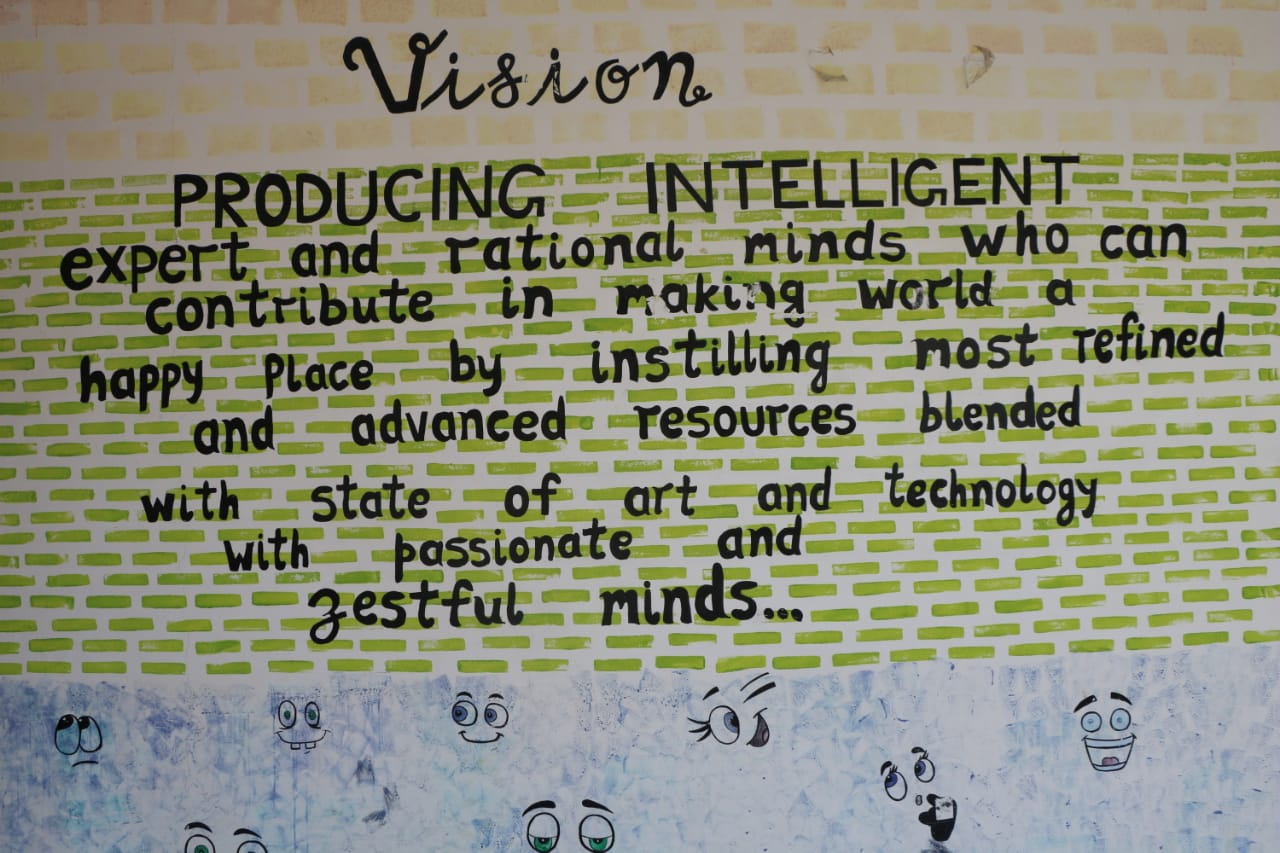 Vision
PRODUCING INTELLIGENT
expert and rational minds who can
contribute in making world a
happy Place by instilling most refined
and advanced resources blended
with state of art and technology
with passionate and
zestful minds...